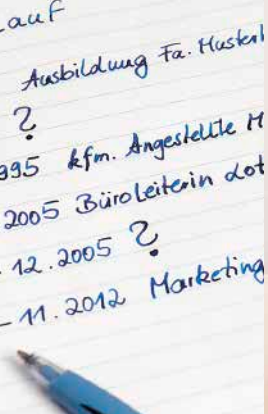 lauf
Ausbildung Fa. Musterh
?
995 kfm. Angestellte M
2005 Büroleiterin dot
- 12.2005 ?
- 11.2012 Marketing